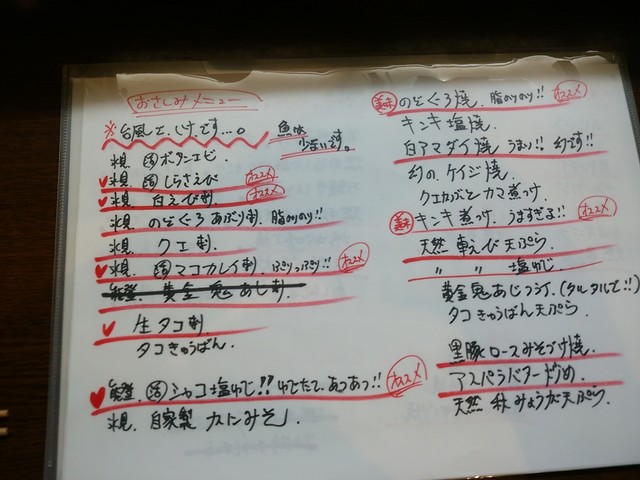 おさしみメニュー
※台風で、しけです…。魚は少ないです。
氷見、活ボタンエビ、
氷見、活しらさえび オススメ
氷見、白えび刺、オススメ
氷見 のどぐろあぶり刺、脂のりのり!!
氷見 クエ刺
氷見、活マコカレイ刺、ぷりっぷり!! オススメ
能登、黄金鬼あじ刺、
生タコ刺
タコきゅうばん、
能登、活シャコ塩ゆで!! ゆでたて、あつあつ!! オススメ
氷見、自家製 カニみそ
美味 のどぐろ焼、脂のりのり!! オススメ
キンキ塩焼、
白アマダイ焼 うまい!! 幻です!!
幻の、ケイジ焼、
クエカブとカマ煮つけ、
美味 キンキ煮つけ、うますぎる!! オススメ
天然 車えび天ぷら、
〃 〃 塩ゆで
黄金鬼あじフライ、(タルタルで!!)
タコきゅうばん天ぷら、
黒豚ロースみそづけ焼、
アスパラバター炒め、
天然 秋みょうが天ぷら、